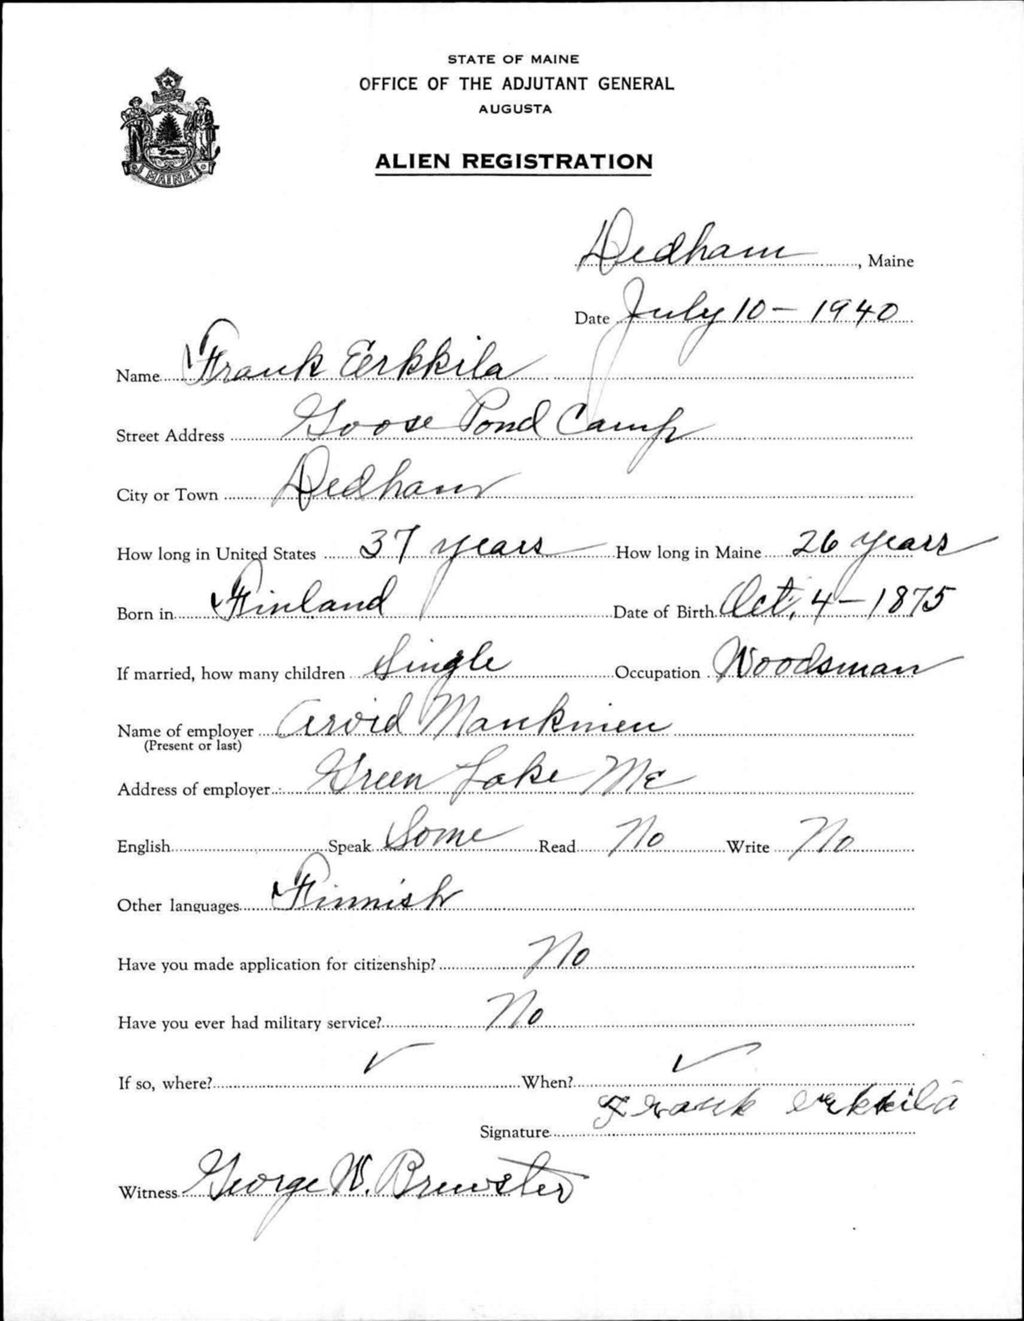 STATE OF MAINE
OFFICE OF THE ADJUTANT GENERAL
AUGUSTA
ALIEN REGISTRATION
MAINE
Dedham, Maine
Date July 10 - 1940
Name Frank Eerkkila
Street Address Goose Pond Camp
City or Town Dedham
How long in United States 37 years How long in Maine 26 years
Born in Finland Date of Birth Oct. 4 - 1875
If married, how many children Single Occupation Woodsman
Name of employer Arvid Mankinen
(Present or last)
Address of employer Green Lake Me
English Speak Some Read No Write No
Other languages Finnish
Have you made application for citizenship? No
Have you ever had military service? No
If so, where? ✓ When? ✓
Signature Frank erkkila
Witness George W. Brewster